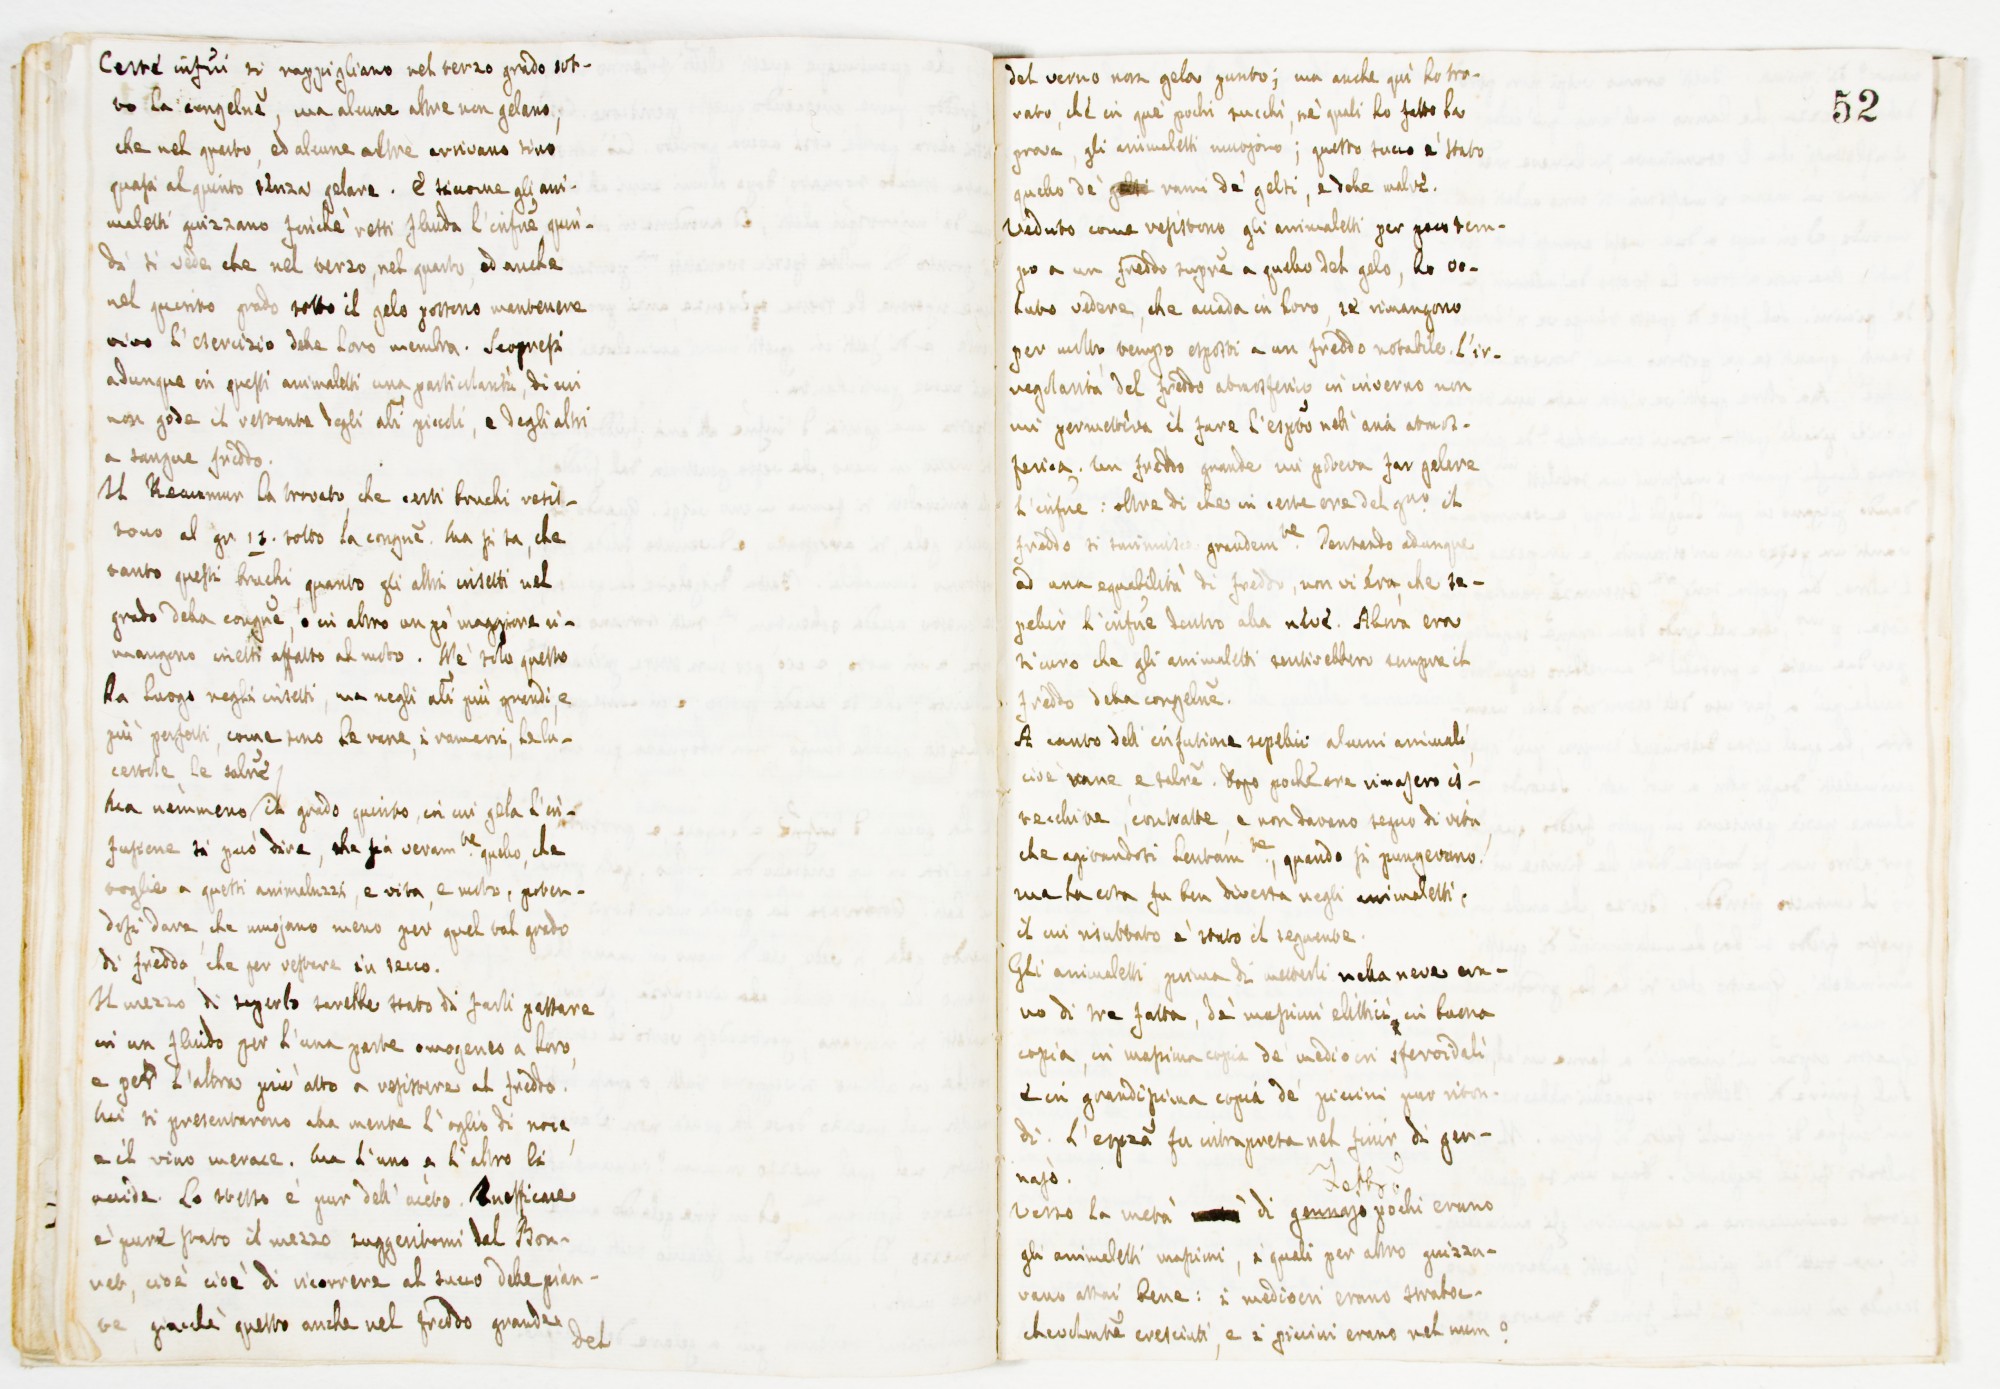 Certe infui si rappigliano nel terzo grado sot-
to la congelñe, ma alcune altre non gelano,
che nel quarto, ed alcune altre arrivano sino
quasi al quinto senza gelare. E siccome gli ani-
maletti guizzano finchè resti fluida l'infuñe, quin-
di si vede che nel terzo, nel quarto, ed anche
nel quinto grado sotto il gelo possono mantenere
vivo l'esercizio delle loro membra. Scopresi
adunque in questi animaletti una particolarità, di cui
non gode il restante degli ali piccoli, e degli altri
a sangue freddo.
Il Reaumur ha trovato, che certi bruchi resis-
tono al gr. 13. sotto la congñe. Ma si sa, che
tanto questi bruchi, quanto gli altri insetti nel
grado della congñe, o in altro un po' maggiore ri-
mangono inetti affatto al moto. Nè solo questo
ha luogo negli insetti, ma negli ali più grandi, e
più perfetti, come sono le rane, i ramarri, le lu-
certole, le salrẽ.
Ma nemmeno il grado quinto, in cui gela l'in-
fusione si può dire, che sia veramte. quello, che
toglie a questi animaluzzi, e vita, e moto, poten-
dosi dare, che muojano meno per quel tal grado
di freddo, che per restare in secco.
Il mezzo di saperlo sarebbe stato di farli passare
in un fluido per l'una parte omogeneo a loro,
e per l'altra più atto a resistere al freddo.
Mi si presentarono alla mente l'oglio di noce,
e il vino merace. Ma l'uno e l'altro li
uccide. Lo stesso è pur dell'aceto. Inefficace
è pure stato il mezzo suggeritomi dal Bon-
net, cioè cioè di ricorrere al succo delle pian-
te, giacchè questo anche nel freddo grande
del
52
del verno non gela punto; ma anche quì ho tro-
vato, chè in que' pochi succhi, ne' quali ho fatto la
prova, gli animaletti muojono; questo succo è stato
quello de' rami de' gelsi, e delle malve.
Veduto come resistono gli animaletti per poco tem-
po a un freddo supre a quello del gelo, ho vo-
luto vedere, che accada in loro, se rimangono
per molto tempo esposti a un freddo notabile. L'ir-
regolarità del freddo atmosferico in inverno non
mi permetteva il fare l'espto nell'aria atmos-
ferica. Un freddo grande mi poteva far gelare
l'infuñe: oltre di che in certe ore del gno. il
freddo si sminuisce grandemte. Pensando adunque
ad una equabilità di freddo, non vi era, che se-
pelir l'infuñe dentro alla neve. Allora era
sicuro che gli animaletti sentirebbero sempre il
freddo della congelñe.
A canto dell'infusione sepelii alcuni animali,
cioè rane e salrẽ. Dopo poche ore rimasero is-
tecchite, contratte, e non davano segno di vita
che agitandosi lentamte., quando si pungevano:
ma la cosa fu ben diversa negli animaletti;
il cui risultato è stato il seguente.
Gli animaletti prima di metterli nella neve era-
no di tre fatta, de' massimi elittici in buona
copia, in massima copia de' mediocri sferoidali
e in grandissima copia de' piccini pur roton-
di. L'espzã fu intrapresa nel finir di gen-
najo.
Febbo.
Verso la metà di gennajo pochi erano
gli animaletti massimi, i quali per altro guizza-
vano assai bene: i mediocri erano straboc-
chevolmtẽ cresciuti, e i piccini erano nel num°